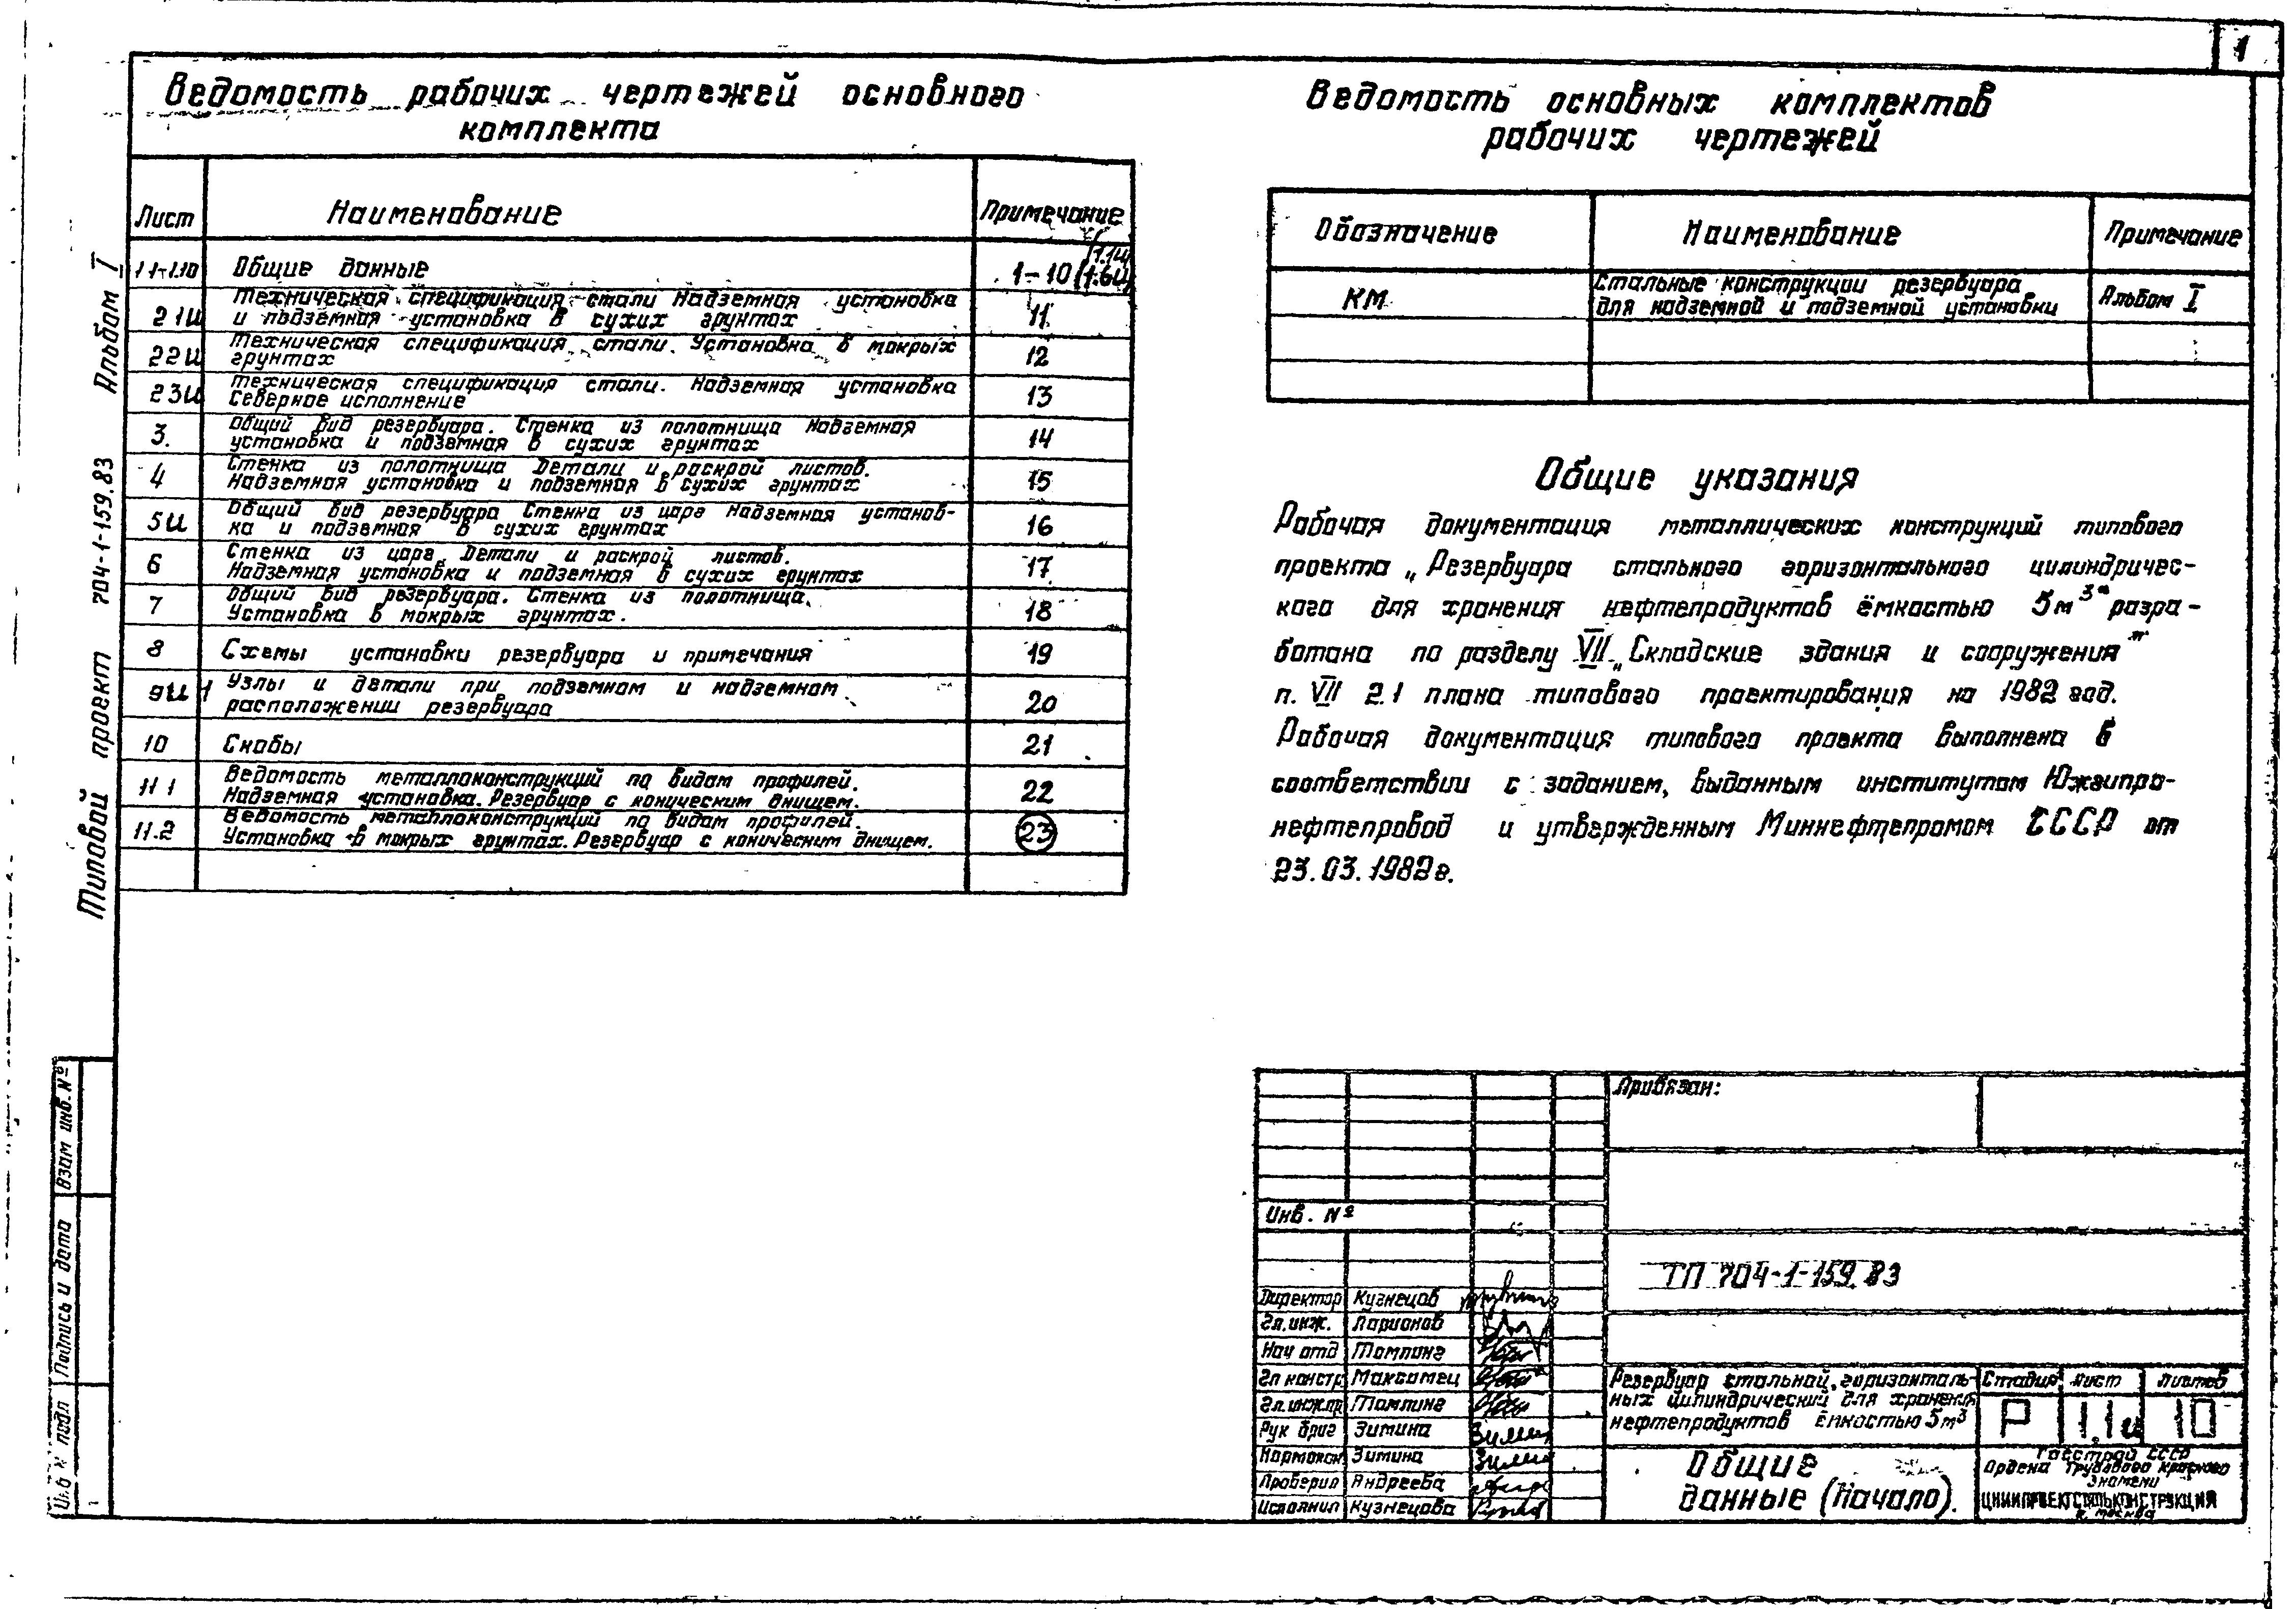 1
Ведомость рабочих чертежей основного
комплекта
Лист
Наименование
Примечание
1.1-1.10
Общие данные
1-10 (1.1и
1.6и)
2.1и
Техническая спецификация стали Надземная установка
и подземная установка в сухих грунтах
11
2.2и
Техническая спецификация стали. Установка в мокрых
грунтах
12
2.3и
Техническая спецификация стали. Надземная установка
Северное исполнение
13
3.
Общий вид резервуара. Стенка из полотнища Надземная
установка и подземная в сухих грунтах
14
4
Стенка из полотнища Детали и раскрой листов.
Надземная установка и подземная в сухих грунтах
15
5и
Общий вид резервуара Стенка из царг Надземная установ-
ка и подземная в сухих грунтах
16
6
Стенка из царг. Детали и раскрой листов.
Надземная установка и подземная в сухих грунтах
17
7
Общий вид резервуара. Стенка из полотнища.
Установка в мокрых грунтах.
18
8
Схемы установки резервуара и примечания
19
9и1
Узлы и детали при подземном и надземном
расположении резервуара
20
10
Скобы
21
11 1
Ведомость металлоконструкций по видам профилей.
Надземная установка. Резервуар с коническим днищем.
22
11.2
Ведомость металлоконструкций по видам профилей.
Установка в мокрых грунтах. Резервуар с коническим днищем.
23
Типовой проект 704-1-159.83 Альбом I
Взам инв. №
Подпись и дата
Инв № подл
Ведомость основных комплектов
рабочих чертежей
Обозначение
Наименование
Примечание
КМ
Стальные конструкции резервуара
для надземной и подземной установки
Альбом I
Общие указания
Рабочая документация металлических конструкций типового
проекта „Резервуара стального горизонтального цилиндричес-
кого для хранения нефтепродуктов ёмкостью 5м³" разра-
ботана по разделу VII „Складские здания и сооружения"
п. VII 2.1 плана типового проектирования на 1982 год.
Рабочая документация типового проекта выполнена в
соответствии с заданием, выданным институтом Южгипро-
нефтепровод и утвержденным Миннефтепромом СССР от
23.03.1982г.
Привязан:
Инв. №
ТП 704-1-159.83
Директор Кузнецов
Гл.инж. Ларионов
Нач отд Томлинг
Гл констр Максомец
Гл.инж.пр Томлинг
Рук бриг Зимина
Нормокон Зимина
Проверил Андреева
Исполнил Кузнецова
Резервуар стальной, горизонталь-
ных цилиндрический для хранения
нефтепродуктов ёмкостью 5м³
Стадия Лист Листов
Р 1.1и 10
Общие
данные (Начало).
Госстрой СССР
Ордена Трудового Красного
Знамени
ЦНИИПРОЕКТСТАЛЬКОНСТРУКЦИЯ
г. Москва